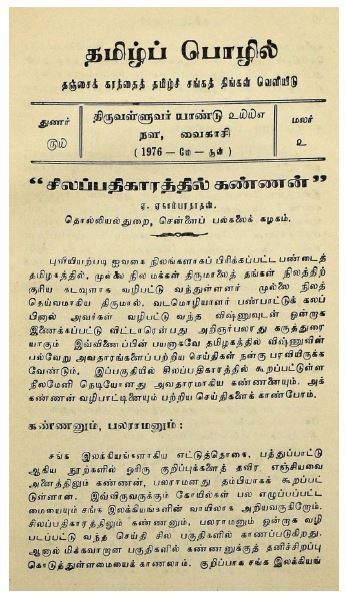 தமிழ்ப் பொழில்
தஞ்சைக் கரந்தைத் தமிழ்ச் சங்கத் திங்கள் வெளியீடு
துணர்
திருவள்ளுவர் யாண்டு ௨௰௰௭
மலர்
௫௰
நள, வைகாசி
௨
(1976 — மே — ஜூன்)
“சிலப்பதிகாரத்தில் கண்ணன்”
ஏ. ஏகாம்பரநாதன்,
தொல்லியல்துறை, சென்னைப் பல்கலைக் கழகம்.
புவியியற்படி ஐவகை நிலங்களாகப் பிரிக்கப்பட்ட பண்டைத்
தமிழகத்தில், முல்லை நில மக்கள் திருமாலைத் தங்கள் நிலத்திற்
குரிய கடவுளாக வழிபட்டு வந்துள்ளனர் முல்லை நிலத்
தெய்வமாகிய திருமால், வடமொழியாளர் பண்பாட்டுக் கலப்
பினால் அவர்கள் வழிபட்டு வந்த விஷ்ணுவுடன் ஒன்றாக
இணைக்கப்பட்டு விட்டாரென்பது அறிஞர்பலரது கருத்துரை
யாகும் இவ்விணைப்பின் பயனாகவே தமிழகத்தில் விஷ்ணுவின்
பல்வேறு அவதாரங்களைப் பற்றிய செய்திகள் நன்கு பரவியிருக்க
வேண்டும். இப்பகுதியில் சிலப்பதிகாரத்தில் கூறப்பட்டுள்ள
நீலமேனி நெடியோனது அவதாரமாகிய கண்ணனையும், அக்
கண்ணன் வழிபாட்டினையும் பற்றிய செய்திகளைக் காண்போம்.
கண்ணனும், பலராமனும் :
சங்க இலக்கியங்களாகிய எட்டுத்தொகை, பத்துப்பாட்டு
ஆகிய நூற்களில் ஓரிரு குறிப்புக்களைத் தவிர எஞ்சியவை
அனைத்திலும் கண்ணன், பலராமனது தம்பியாகக் கூறப்பட்
டுள்ளான். இவ்விருவருக்கும் கோயில்கள் பல எழுப்பப்பட்ட
மையையும் சங்க இலக்கியங்களின் வாயிலாக அறியவருகிறோம்.
சிலப்பதிகாரத்திலும் கண்ணனும், பலராமனும் ஒன்றாக வழி
படப்பட்டு வந்த செய்தி சில பகுதிகளில் காணப்படுகிறது.
ஆனால் மிக்கவாறான பகுதிகளில் கண்ணனுக்குத் தனிச்சிறப்பு
கொடுத்துள்ளமையைக் காணலாம். குறிப்பாக சங்க இலக்கியங்